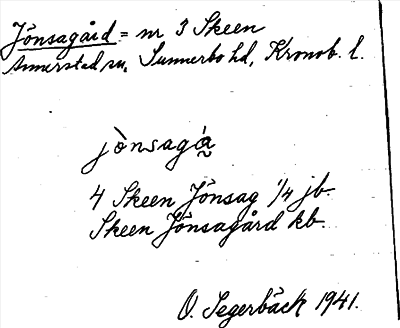 Jönsagård = nr 3 Skeen
Annerstad sn, Sunnerbo hd, Kronob. l.
jònsagá̰
4 Skeen Jönsag 1/4 jb.
Skeen Jönsagård kb.
O. Segerbäck 1941.